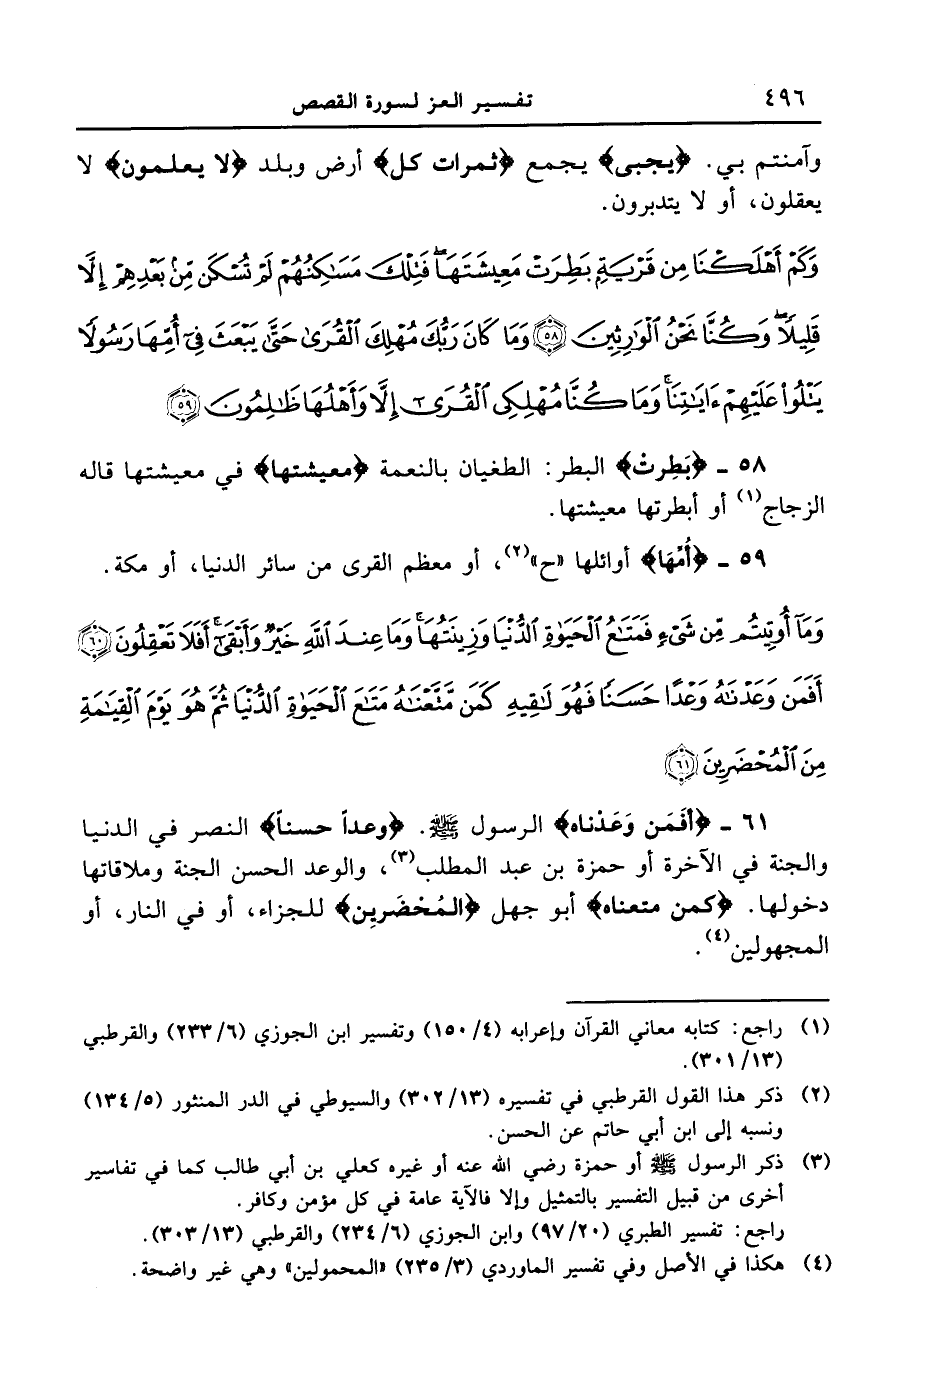 ٤٩٦ تفسير العز لسورة القصص
وآمنتم بي. ﴿يجبى﴾ يجمع ﴿ثمرات كل﴾ أرض وبلد ﴿لا يعلمون﴾ لا
يعقلون، أو لا يتدبرون.
وَكَمْ أَهْلَكْنَا مِن قَرْيَةٍ بَطِرَتْ مَعِيشَتَهَا ۖ فَتِلْكَ مَسَاكِنُهُمْ لَمْ تُسْكَن مِّنۢ بَعْدِهِمْ إِلَّا
قَلِيلًا ۖ وَكُنَّا نَحْنُ الْوَارِثِينَ ﴿٥٨﴾ وَمَا كَانَ رَبُّكَ مُهْلِكَ الْقُرَىٰ حَتَّىٰ يَبْعَثَ فِىٓ أُمِّهَا رَسُولًا
يَتْلُوا۟ عَلَيْهِمْ ءَايَاتِنَا ۚ وَمَا كُنَّا مُهْلِكِى الْقُرَىٰٓ إِلَّا وَأَهْلُهَا ظَالِمُونَ ﴿٥٩﴾
٥٨ ـ ﴿بَطِرتْ﴾ البطر: الطغيان بالنعمة ﴿معيشتها﴾ في معيشتها قاله
الزجاج(١) أو أبطرتها معيشتها.
٥٩ ـ ﴿أُمِّهَا﴾ أوائلها «ح»(٢)، أو معظم القرى من سائر الدنيا، أو مكة.
وَمَآ أُوتِيتُم مِّن شَىْءٍ فَمَتَاعُ الْحَيَوٰةِ الدُّنْيَا وَزِينَتُهَا ۚ وَمَا عِندَ اللَّهِ خَيْرٌ وَأَبْقَىٰٓ ۚ أَفَلَا تَعْقِلُونَ ﴿٦٠﴾
أَفَمَن وَعَدْنَاهُ وَعْدًا حَسَنًا فَهُوَ لَاقِيهِ كَمَن مَّتَّعْنَاهُ مَتَاعَ الْحَيَوٰةِ الدُّنْيَا ثُمَّ هُوَ يَوْمَ الْقِيَامَةِ
مِنَ الْمُحْضَرِينَ ﴿٦١﴾
٦١ ـ ﴿أفَمَن وَعَدْناه﴾ الرسول ﷺ. ﴿وعداً حسناً﴾ النصر في الدنيا
والجنة في الآخرة أو حمزة بن عبد المطلب(٣)، والوعد الحسن الجنة وملاقاتها
دخولها. ﴿كمن متعناه﴾ أبو جهل ﴿المُحْضَرِين﴾ للجزاء، أو في النار، أو
المجهولين(٤).
(١) راجع: كتابه معاني القرآن وإعرابه (٤/١٥٠) وتفسير ابن الجوزي (٦/٢٣٣) والقرطبي
(١٣/٣٠١).
(٢) ذكر هذا القول القرطبي في تفسيره (١٣/٣٠٢) والسيوطي في الدر المنثور (٥/١٣٤)
ونسبه إلى ابن أبي حاتم عن الحسن.
(٣) ذكر الرسول ﷺ أو حمزة رضي الله عنه أو غيره كعلي بن أبي طالب كما في تفاسير
أخرى من قبيل التفسير بالتمثيل وإلا فالآية عامة في كل مؤمن وكافر.
راجع: تفسير الطبري (٢٠/٩٧) وابن الجوزي (٦/٢٣٤) والقرطبي (١٣/٣٠٣).
(٤) هكذا في الأصل وفي تفسير الماوردي (٣/٢٣٥) «المحمولين» وهي غير واضحة.